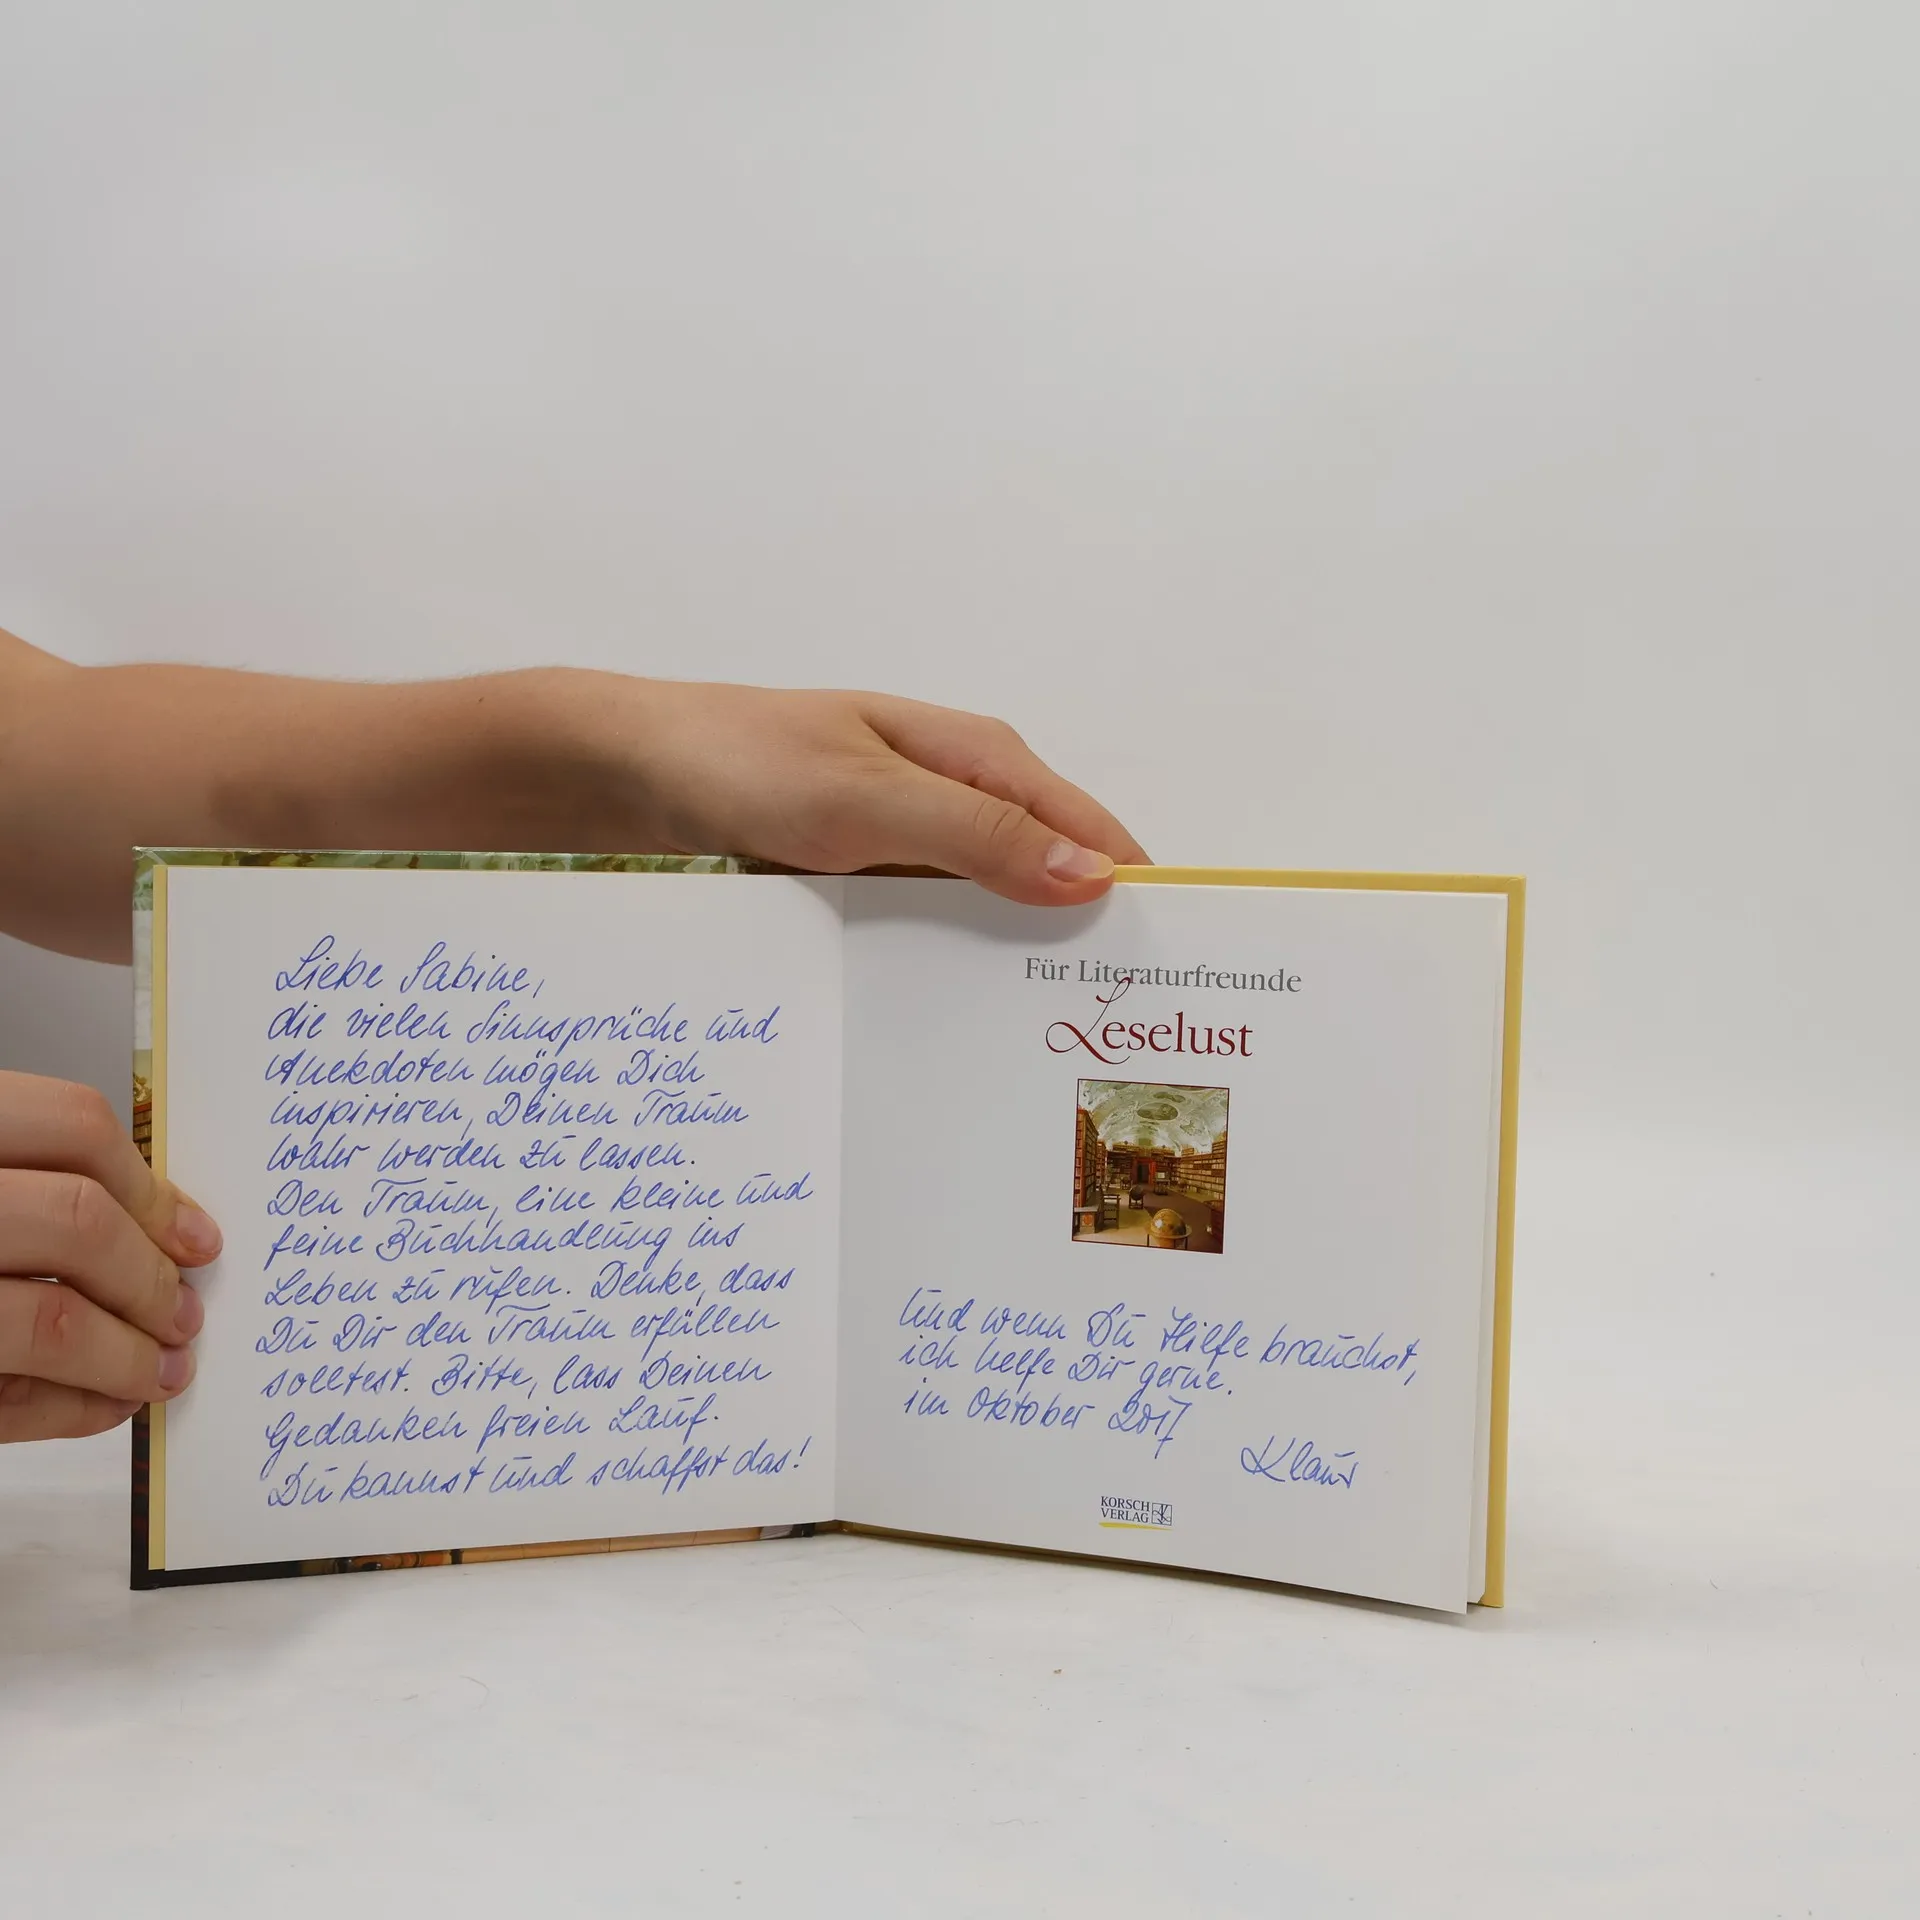 Liebe Sabine,
die vielen Sinnsprüche und
Anekdoten mögen Dich
inspirieren, Deinen Traum
wahr werden zu lassen.
Den Traum, eine kleine und
feine Buchhandlung ins
Leben zu rufen. Denke, dass
Du Dir den Traum erfüllen
solltest. Bitte, lass Deinen
Gedanken freien Lauf.
Du kannst und schaffst das!
Für Literaturfreunde
Leselust
Und wenn Du Hilfe brauchst,
ich helfe Dir gerne.
im Oktober 2017
Klaus
KORSCH
VERLAG